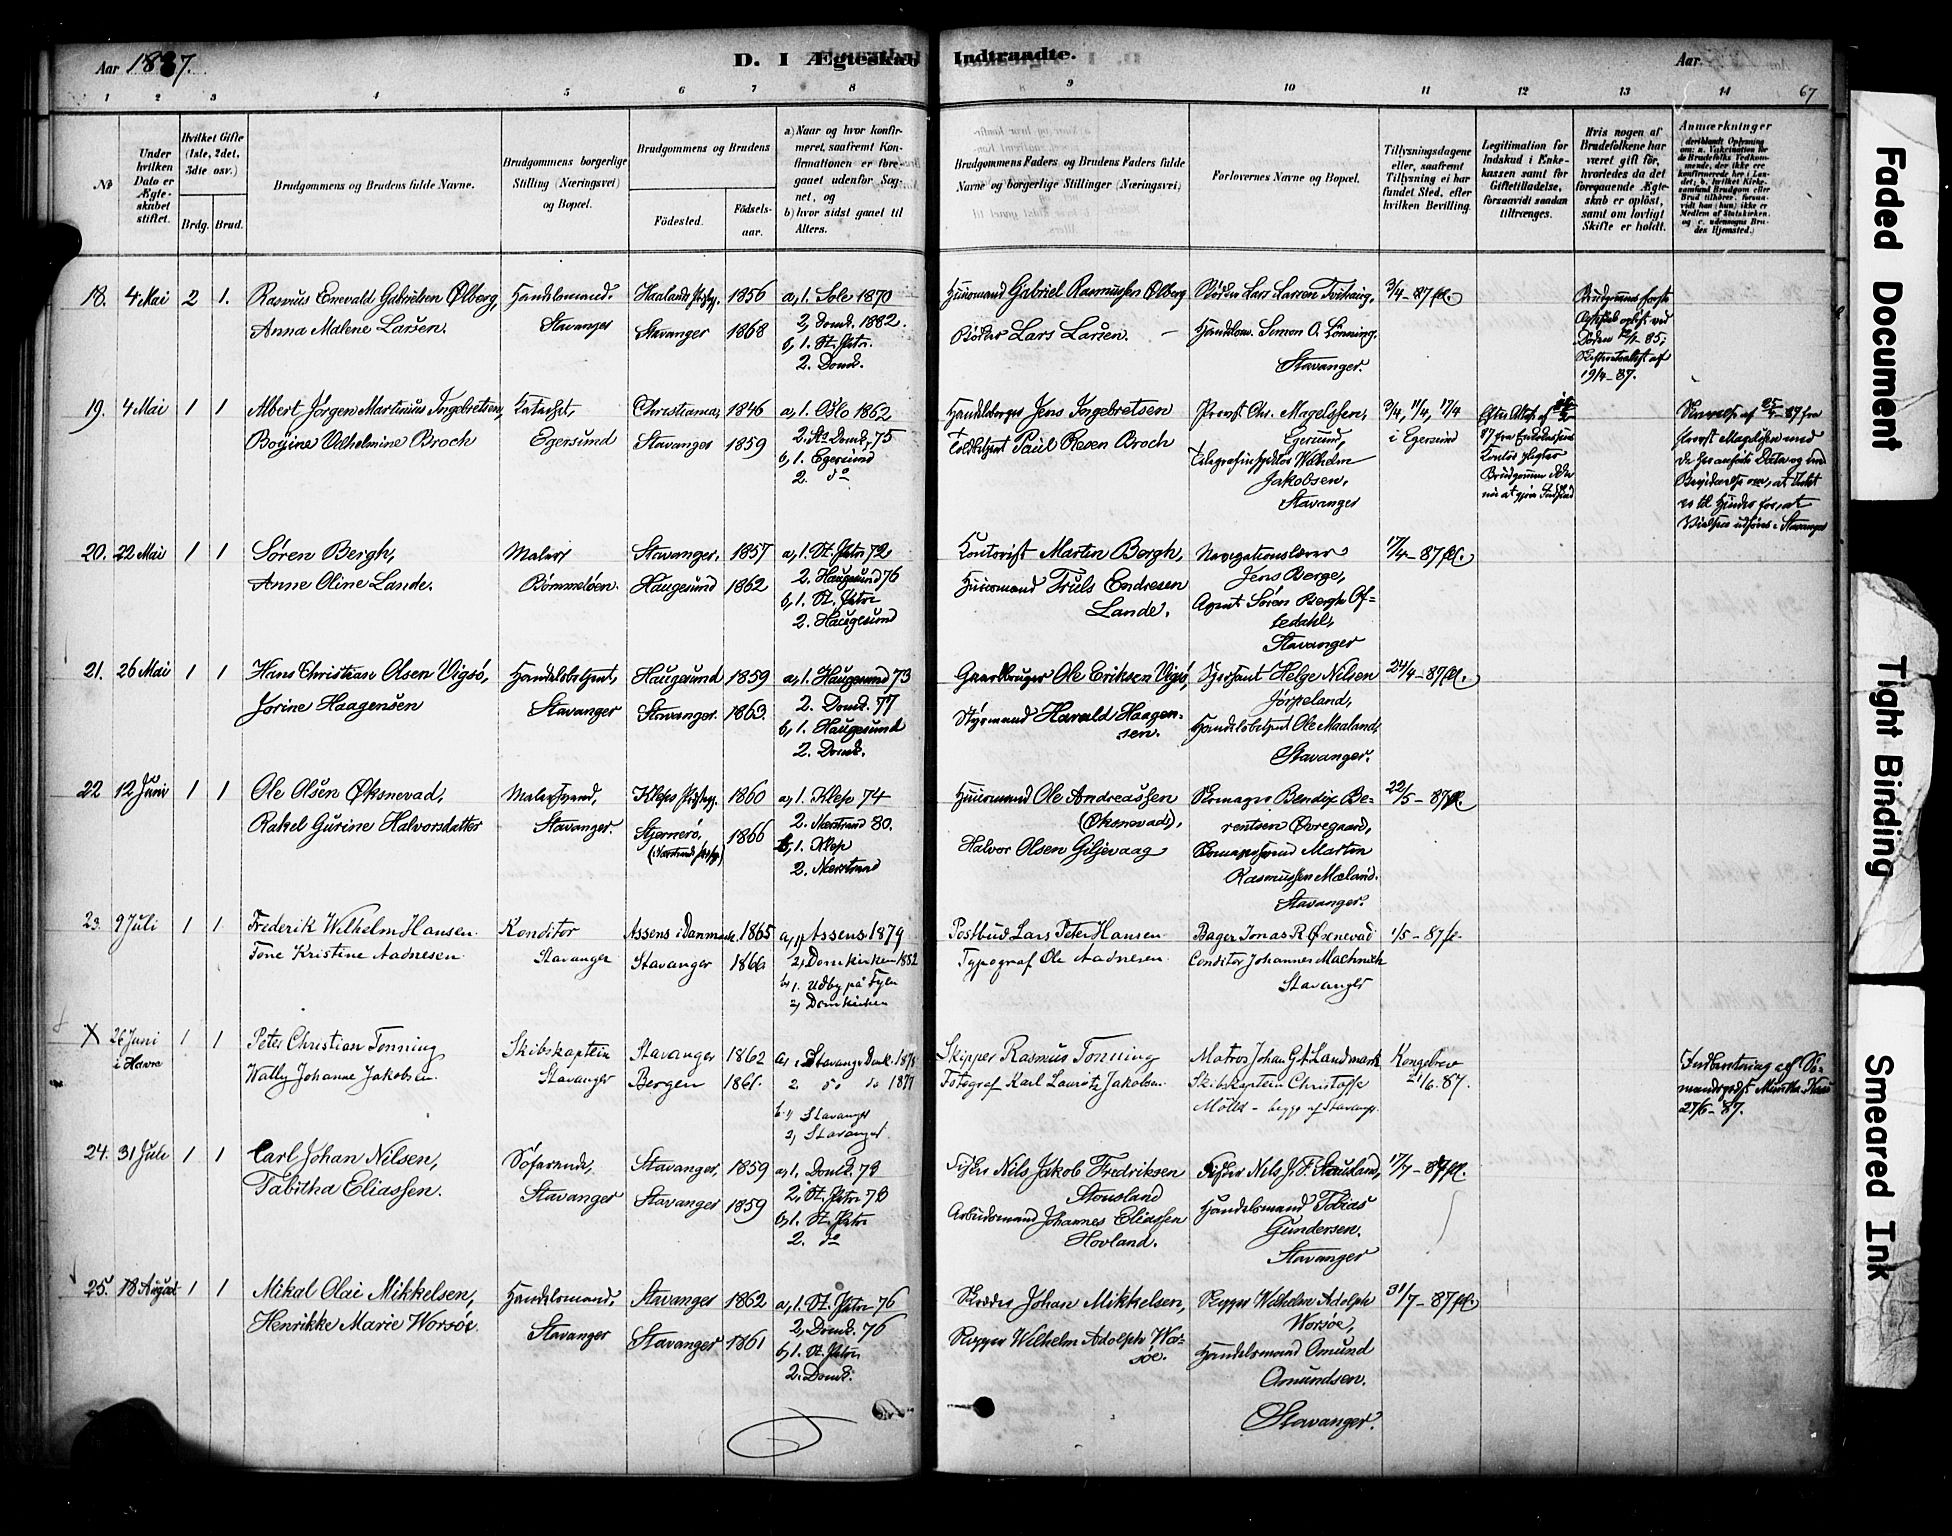 Aar 1887.
D. I Ægteskab Indtraadte.
Aar
67
1 2 3 4 5 6 7 8 9 10 11 12 13 14
No
Under hvilken Dato er Ægteskabet stiftet.
Hvilket Gifte (1ste, 2det, 3dte osv.)
Brdg. Brud.
Brudgommens og Brudens fulde Navne.
Brudgommens borgerlige Stilling (Næringsvei) og Bopæl.
Brudgommens og Brudens
Födested.
Födselsaar.
a) Naar og hvor konfirmeret, saafremt Konfirmationen er foregaaet udenfor Sognet, og
b) hvor sidst gaaet til Alters.
Brudgommens Faders og Brudens Faders fulde Navne og borgerlige Stillinger (Næringsvei)
Forlovernes Navne og Bopæl.
Tillysningsdagene eller, saafremt Tillysning ei har fundet Sted, efter hvilken Bevilling.
Legitimation for Indskud i Enkekassen samt for Giftetilladelse, forsaavidt saadan tiltrænges.
Hvis nogen af Brudefolkene har været gift för, hvorledes da det foregaaende Ægteskab er oplöst, samt om lovligt Skifte er holdt.
Anmærkninger
18. 4 Mai 2 1.
Rasmus Enevald Gabrielsen Ølberg,
Anna Malene Larsen.
Handelsmand.
Stavanger
Haalands Prstgj. 1856
Stavanger 1868
a, 1. Sole 1870
2, Domk. 1882.
b, 1. St. Petri
2. Domk.
Huusmand Gabriel Rasmussen Ølberg
Bödker Lars Larsen.
Bödker Lars Larsen Tvethaug,
Handelsm. Simon O. Lönning.
Stavanger.
3/4 - 87 fl.
Brudgommens første Ægteskab opløst ved Döden
85;
Skifteretsattest af
19/4 - 87.
19. 4 Mai 1 1
Albert Jörgen Martinius Ingebretsen,
Boyine Vilhelmine Broch
Katechet,
Egersund
Christiania, 1846
Stavanger 1859
a, 1. Oslo 1862
2. Domk. 75
b, 1. Egersund
2. do
Handelsborger Jens Ingebretsen
Toldbetjent Paul Resen Broch
Provst Chr. Magelssen,
Egersund,
Telegrafinspektör Wilhelm
Jakobsen,
Stavanger
3/4, 11/4, 17/4
i Egersund
Efter Attest af
87 fra Enkekassens
Kontor pligter
Brudgommen ikke
- 87 fra
Provst Magelssen med
at Intet
er til Hinder for, at
Vielsen udføres i Stavanger
20. 22 Mai 1 1
Søren Bergh,
Anne Oline Lande.
Maler,
Bömmelöen.
Stavanger, 1857
Haugesund 1862
a, 1. St. Petri 72
2. Haugesund 76
b, 1. St. Petri
2. Haugesund
Kontorist Martin Bergh,
Huusmand Truls Endresen
Lande.
Navigationslærer
Jens Berge,
Agent Søren Bergh Of-
tedahl,
Stavanger
17/4 - 87 fl.
21. 26 Mai 1 1
Hans Christian Olsen Vigsö,
Jorine Haagensen
Handelsbetjent,
Stavanger
Haugesund 1859
Stavanger. 1863.
a, 1. Haugesund 73
2. Domk. 77
b, 1. Haugesund
2. Domk.
Gaardbruger Ole Eriksen Vigsö,
Styrmand Harald Haagen-
sen.
Sjersant Helge Nilsen
Jörpeland,
Handelsbetjent Ole Maaland,
Stavanger.
24/4 - 87 fl.
22 12 Juni 1 1
Ole Olsen Øksnevad,
Rakel Gurine Halvorsdatter
Malersvend,
Stavanger.
Kleps Prstgj. 1860
Stjernerö, 1866
(Nærstrands Prstgj.)
a, 1. Klep 74
2. Nærstrand 80.
b, 1. Klep
2. Nærstrand
Huusmand Ole Andreassen
(Øksnevad),
Halvor Olsen Giljevaag
Skomager Bendix Be-
rentsen Øvregaard,
Skomagersvend Martin
Rasmussen Mæland.
Stavanger.
22/5 - 87 fl.
23. 9 Juli 1 1
Frederik Wilhelm Hansen
Tone Kristine Aadnesen
Konditor
Stavanger
Assens i Danmark. 1865
Stavanger 1866
a, 1, Assens 1879
2, Domkirken 1882
b, 1. Udby på Fyen
2, Domkirken
Postbud Lars Peter Hansen
Typograf Ole Aadnesen
Bager Jonas R. Øksnevad
Conditor Johannes Machnick
Stavanger
1/5 - 87 fl.
X 26 Juni 1 1
i Havre
Peter Christian Tonning
Wally Johanne Jakobsen
Skibskaptein
Stavanger
Stavanger 1862
Bergen 1861.
a, 1 Stavanger Domk. 1878
2 do do 1877
b, 1) Stavanger
2) Stavanger.
Skipper Rasmus Tonning
Fotograf Karl Lauritz Jakobsen
Matros Johan G. A. Landmark
Skibskaptein Christoffer
Möller - begge af Stavanger.
Kongebrev
21/6. 87.
Indberetning af Sö-
mandsprest
27/6 - 87.
24. 31 Juli 1 1
Carl Johan Nilsen,
Tabitha Eliassen.
Söfarende,
Stavanger
Stavanger, 1859
Stavanger 1859
a, 1. Domk. 73
2. St. Petri 73
b, 1. St. Petri
2. do
Fisker Nils Jakob Fredriksen
Stousland
Arbeidsmand Johannes Eliassen
Hovland.
Fisker Nils J. F. Stausland,
Handelsmand Tobias
Gundersen.
Stavanger
17/7 - 87 fl.
25. 18 August 1 1
Mikal Olai Mikkelsen,
Henrikke Marie Worsöe.
Handelsmand,
Stavanger
Stavanger 1862
Stavanger 1861
a, 1. St. Petri 76
2, Domk. 76
b, 1. St. Petri
2. Domk.
Skræder Johan Mikkelsen,
Skipper Wilhelm Adolph Wor-
söe.
Skipper Wilhelm Adolph
Worsöe,
Handelsmand Omund
Omundsen.
Stavanger.
31/7 - 87 fl.
Faded Document
Tight Binding
Smeared Ink